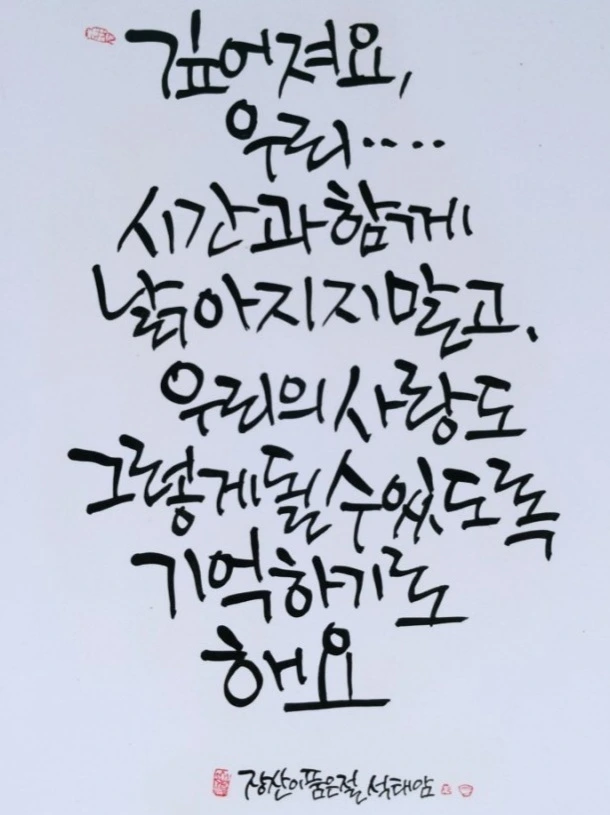 깊어져요,
우리....
시간과 함께
낡아지지 말고.
우리의 사랑도
그렇게 될 수 있도록
기억하기로
해요
장산이 품은 절 석태암